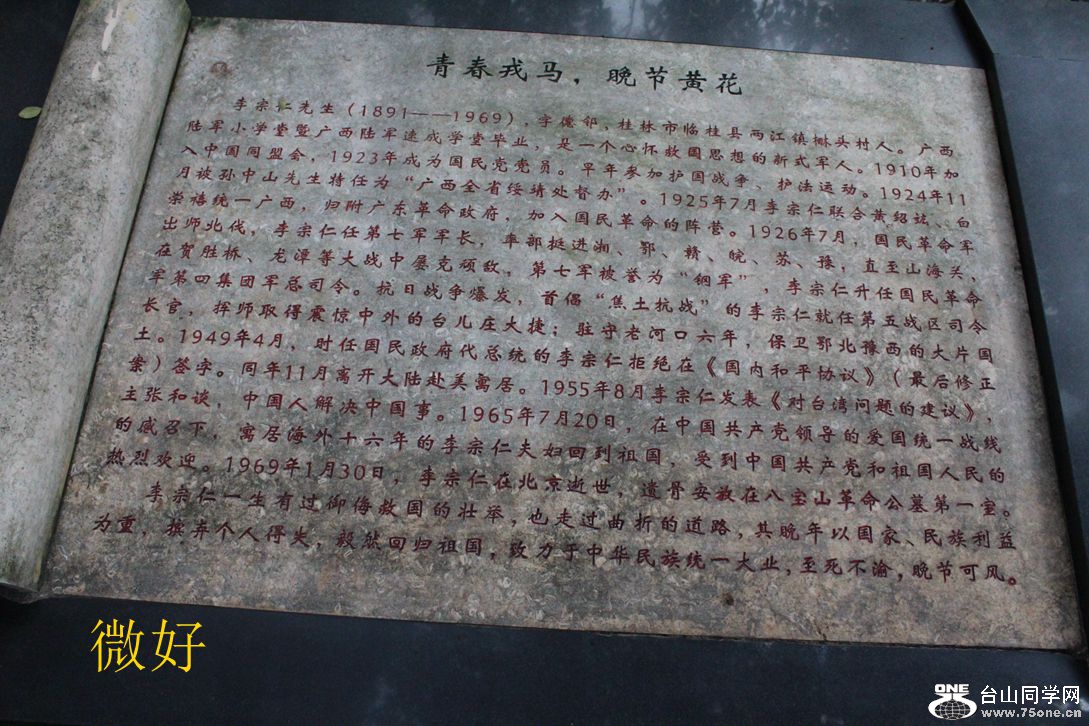 青春戎马，晚节黄花
李宗仁先生（1891——1969），字德邻，桂林市临桂县两江镇㮾头村人。广西
陆军小学堂暨广西陆军速成学堂毕业，是一个心怀救国思想的新式军人。1910年加
入中国同盟会，1923年成为国民党党员。早年参加护国战争、护法运动。1924年11
月被孙中山先生特任为“广西全省绥靖处督办”。1925年7月李宗仁联合黄绍竑、白
崇禧统一广西，归附广东革命政府，加入国民革命的阵营。1926年7月，国民革命军
出师北伐，李宗仁任第七军军长，率部挺进湘、鄂、赣、皖、苏、豫，直至山海关，
在贺胜桥、龙潭等大战中屡克顽敌，第七军被誉为“钢军”，李宗仁升任国民革命
军第四集团军总司令。抗日战争爆发，首倡“焦土抗战”的李宗仁就任第五战区司令
长官，挥师取得震惊中外的台儿庄大捷；驻守老河口六年，保卫鄂北豫西的大片国
土。1949年4月，时任国民政府代总统的李宗仁拒绝在《国内和平协议》（最后修正
案）签字。同年11月离开大陆赴美寓居。1955年8月李宗仁发表《对台湾问题的建议》，
主张和谈，中国人解决中国事。1965年7月20日，在中国共产党领导的爱国统一战线
的感召下，寓居海外十六年的李宗仁夫妇回到祖国，受到中国共产党和祖国人民的
热烈欢迎。1969年1月30日，李宗仁在北京逝世，遗骨安放在八宝山革命公墓第一室。
李宗仁一生有过御侮救国的壮举，也走过曲折的道路，其晚年以国家、民族利益
为重，摈弃个人得失，毅然回归祖国，致力于中华民族统一大业，至死不渝，晚节可风。
微好
ONE 台山同学网
www.75one.cn